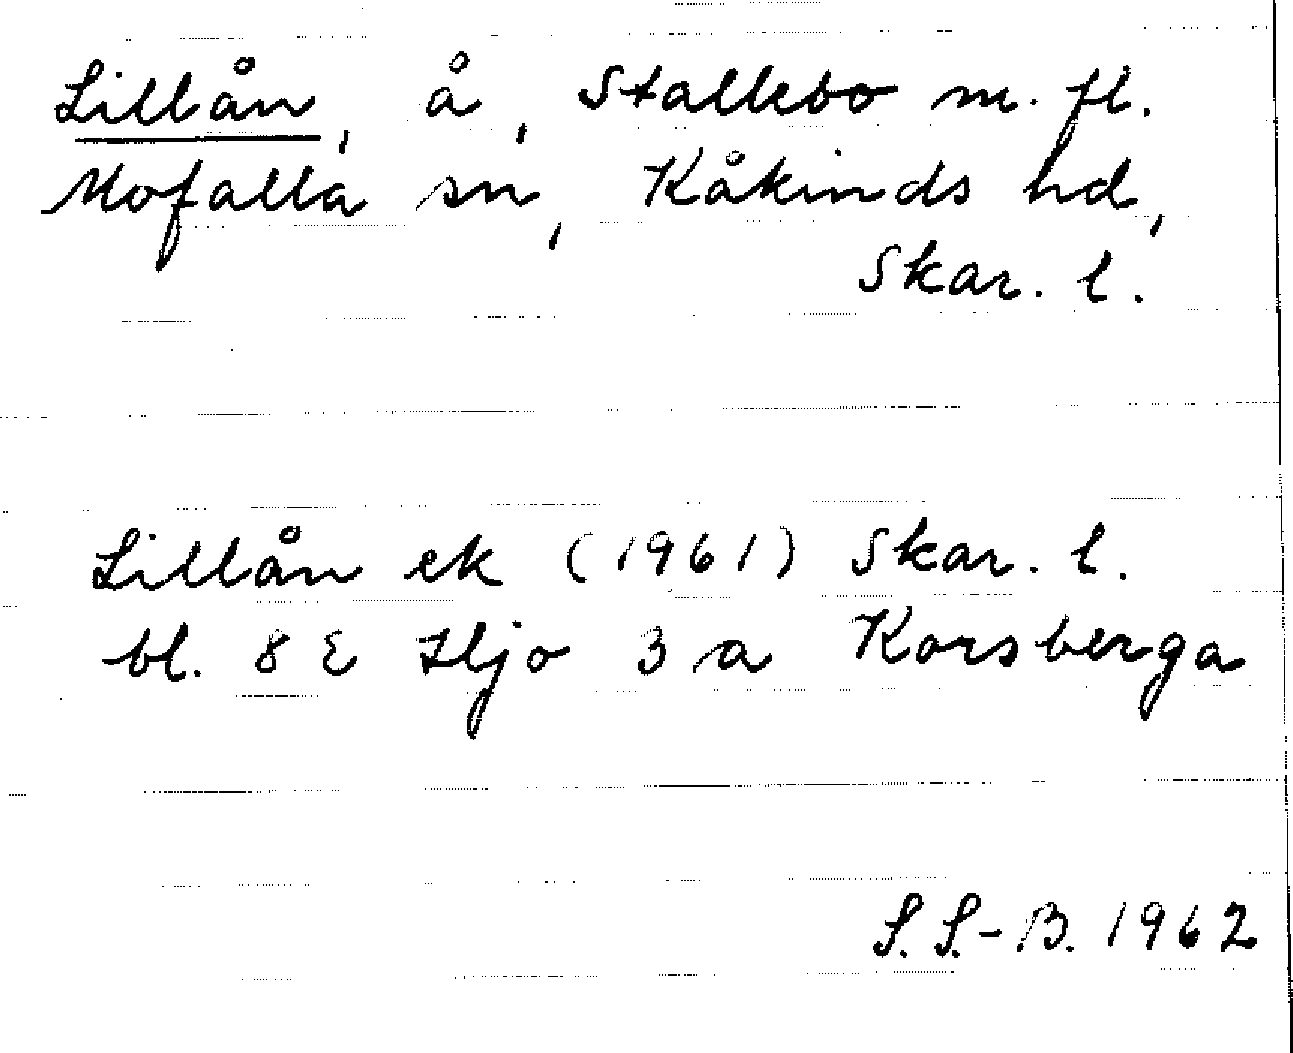 Lillån, å, Stallebo m. fl.
Mofalla sn, Kåkinds hd,
Skar. l.
Lillån ek (1961) Skar. l.
bl. 8 E Hjo 3 a Korsberga
S. S.-B. 1962